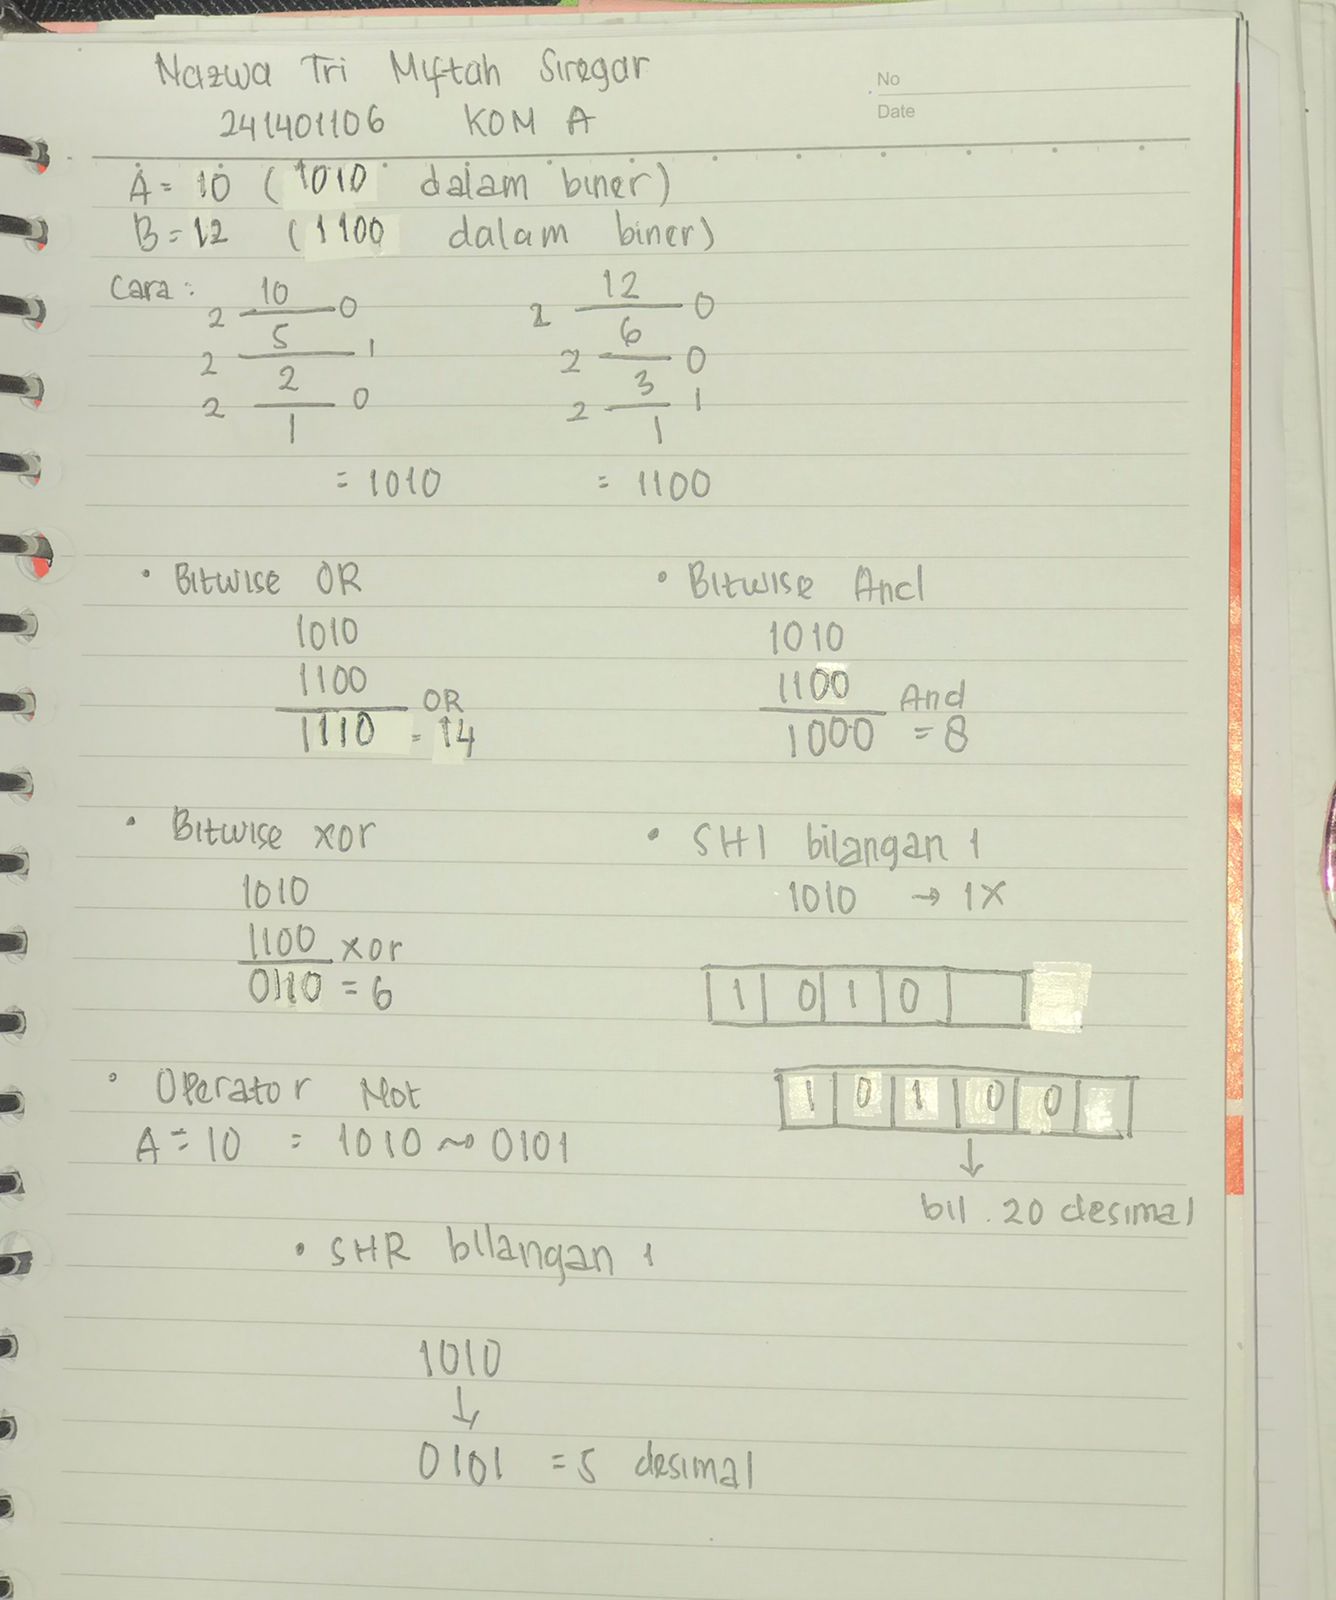 Nazwa Tri Miftah Siregar
No
241401106 KOM A
Date
A = 10 (1010 dalam biner)
B = 12 (1100 dalam biner)
Cara :
2 10 0
2 5 1
2 2 0
1
= 1010
2 12 0
2 6 0
2 3 1
1
= 1100
• Bitwise OR
1010
1100
OR
1110 = 14
• Bitwise And
1010
1100
And
1000 = 8
• Bitwise xor
1010
1100 xor
0110 = 6
• SHI bilangan 1
1010 → 1x
1 0 1 0
1 0 1 0 0
↓
bil . 20 desimal
• Operator Not
A = 10 = 1010 ~ 0101
• SHR bilangan 1
1010
↓
0101 = 5 desimal